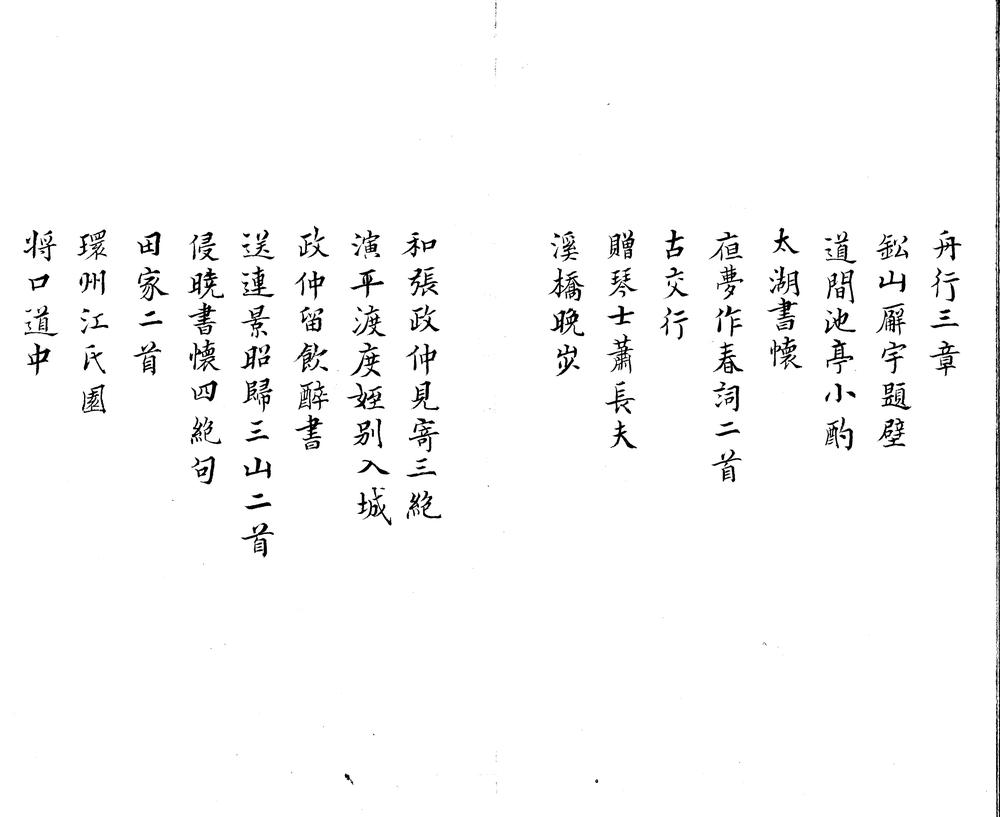 舟行三章
鈆山廨宇題壁
道間池亭小酌
太湖書懷
夜夢作春詞二首
古交行
贈琴士蕭長夫
溪橋晚步
和張政仲見寄三絶
演平渡度姪别入城
政仲留飲醉書
送連景昭歸三山二首
侵曉書懷四絶句
田家二首
環州江氏園
將口道中